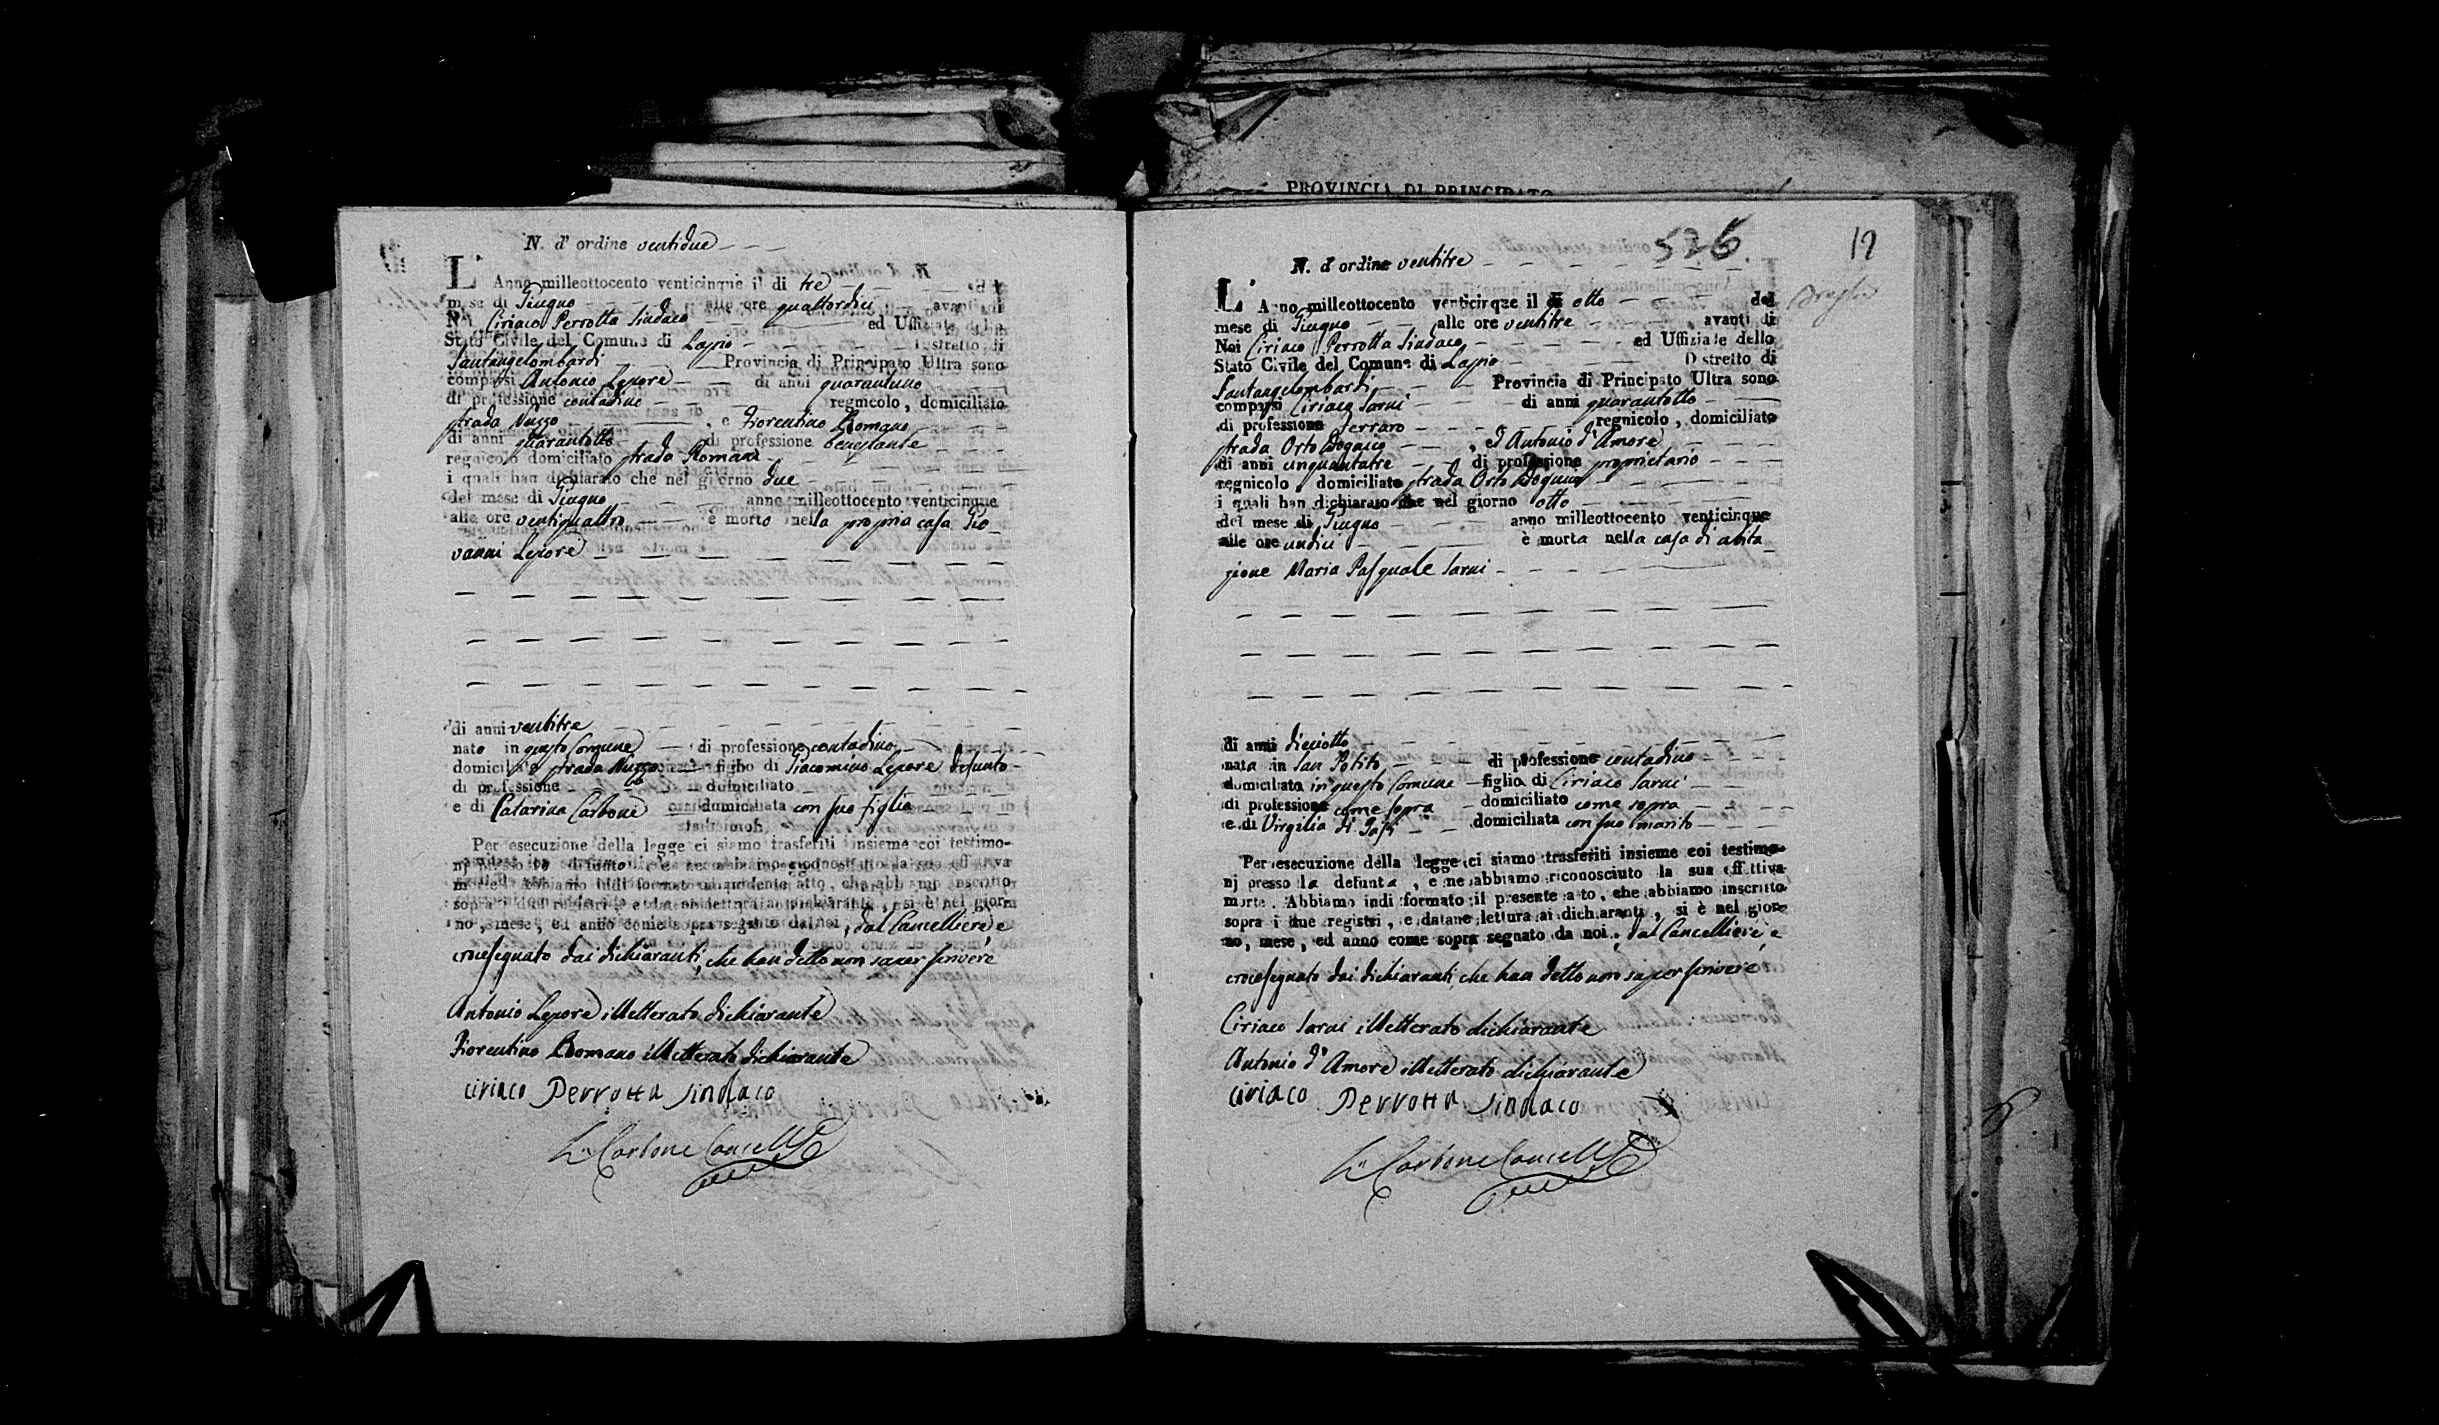 PROVINCIA DI PRINCIPATO
N. d' ordine ventidue
L' Anno milleottocento venticinque il di tre
mese di Giugno alle ore quattordici avanti di
Noi Ciriaco Perrotta Sindaco ed Uffiziale dello
Stato Civile del Comune di Lapio Distretto di
Santangelombardi Provincia di Principato Ultra sono
comparsi Antonio Lepore di anni quarantuno
di professione contadino regnicolo, domiciliato
strada Nuzzo, e Fiorentino Romano
di anni quarantotto di professione benestante
regnicolo domiciliato strada Romani
i quali han dichiarato che nel giorno due
del mese di Giugno anno milleottocento venticinque
alle ore ventiquattro è morto nella propria casa Gio
vanni Lepore
di anni ventitre
nato in questo Comune di professione contadino
domiciliato strada Nuzzo figlio di Giacomino Lepore defunto
di professione domiciliato
e di Catarina Carbone domiciliata con suo figlio
Per esecuzione della legge ci siamo trasferiti insieme coi testimo-
nj presso il defunto, e ne abbiamo riconosciuto la sua effettiva
morte. Abbiamo indi formato il presente atto, che abbiamo inscritto
sopra i due registri, e datane lettura ai dichiaranti, si è nel gior-
no, mese, ed anno come sopra segnato da noi, dal Cancelliere, e
crocesegnato dai dichiaranti, che han detto non saper scrivere
Antonio Lepore illetterato dichiarante
Fiorentino Romano illetterato dichiarante
Ciriaco Perrotta Sindaco
Carbone Cancell
526.
12
N. d' ordine ventitre
L' Anno milleottocento venticinque il di otto del
mese di Giugno alle ore ventitre avanti di
Noi Ciriaco Perrotta Sindaco ed Uffiziale dello
Stato Civile del Comune di Lapio Distretto di
Santangelombardi Provincia di Principato Ultra sono
comparsi Ciriaco Sarni di anni quarantotto
di professione Ferraro regnicolo, domiciliato
strada Orto, ed Antonio d'Amore
di anni cinquantatre di professione proprietario
regnicolo domiciliato strada Orto
i quali han dichiarato che nel giorno otto
del mese di Giugno anno milleottocento venticinque
alle ore undici è morta nella casa di abita
zione Maria Pasquale Sarni
di anni dieciotto
nata in San Potito di professione contadina
domiciliata in questo Comune figlia di Ciriaco Sarni
di professione come sopra domiciliato come sopra
e di Virgilia di domiciliata con suo marito
Per esecuzione della legge ci siamo trasferiti insieme coi testimo-
nj presso la defunta, e ne abbiamo riconosciuto la sua effettiva
morte. Abbiamo indi formato il presente atto, che abbiamo inscritto
sopra i due registri, e datane lettura ai dichiaranti, si è nel gior-
no, mese, ed anno come sopra segnato da noi, dal Cancelliere, e
crocesegnato dai dichiaranti, che han detto non saper scrivere
Ciriaco Sarni illetterato dichiarante
Antonio d'Amore illetterato dichiarante
Ciriaco Perrotta Sindaco
Carbone Cancell